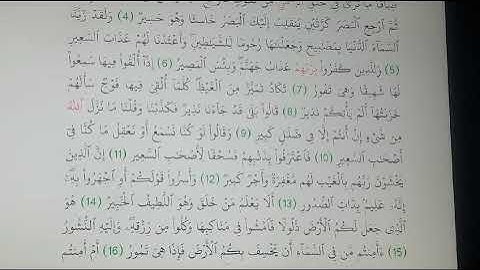 طِبَاقًا مَا تَرَىٰ فِي خَلْقِ
ثُمَّ ٱرْجِعِ ٱلْبَصَرَ كَرَّتَيْنِ يَنقَلِبْ إِلَيْكَ ٱلْبَصَرُ خَاسِئًا وَهُوَ حَسِيرٌ (4) وَلَقَدْ زَيَّنَّا
ٱلسَّمَآءَ ٱلدُّنْيَا بِمَصَٰبِيحَ وَجَعَلْنَٰهَا رُجُومًا لِّلشَّيَٰطِينِ وَأَعْتَدْنَا لَهُمْ عَذَابَ ٱلسَّعِيرِ
(5) وَلِلَّذِينَ كَفَرُوا۟ بِرَبِّهِمْ عَذَابُ جَهَنَّمَ وَبِئْسَ ٱلْمَصِيرُ (6) إِذَآ أُلْقُوا۟ فِيهَا سَمِعُوا۟
لَهَا شَهِيقًا وَهِىَ تَفُورُ (7) تَكَادُ تَمَيَّزُ مِنَ ٱلْغَيْظِ كُلَّمَآ أُلْقِىَ فِيهَا فَوْجٌ سَأَلَهُمْ
خَزَنَتُهَآ أَلَمْ يَأْتِكُمْ نَذِيرٌ (8) قَالُوا۟ بَلَىٰ قَدْ جَآءَنَا نَذِيرٌ فَكَذَّبْنَا وَقُلْنَا مَا نَزَّلَ ٱللَّهُ
مِن شَىْءٍ إِنْ أَنتُمْ إِلَّا فِى ضَلَٰلٍ كَبِيرٍ (9) وَقَالُوا۟ لَوْ كُنَّا نَسْمَعُ أَوْ نَعْقِلُ مَا كُنَّا فِىٓ
أَصْحَٰبِ ٱلسَّعِيرِ (10) فَٱعْتَرَفُوا۟ بِذَنۢبِهِمْ فَسُحْقًا لِّأَصْحَٰبِ ٱلسَّعِيرِ (11) إِنَّ ٱلَّذِينَ
يَخْشَوْنَ رَبَّهُم بِٱلْغَيْبِ لَهُم مَّغْفِرَةٌ وَأَجْرٌ كَبِيرٌ (12) وَأَسِرُّوا۟ قَوْلَكُمْ أَوِ ٱجْهَرُوا۟ بِهِۦٓ
إِنَّهُۥ عَلِيمٌۢ بِذَاتِ ٱلصُّدُورِ (13) أَلَا يَعْلَمُ مَنْ خَلَقَ وَهُوَ ٱللَّطِيفُ ٱلْخَبِيرُ (14) هُوَ
ٱلَّذِى جَعَلَ لَكُمُ ٱلْأَرْضَ ذَلُولًا فَٱمْشُوا۟ فِى مَنَاكِبِهَا وَكُلُوا۟ مِن رِّزْقِهِۦ وَإِلَيْهِ ٱلنُّشُورُ
(15) ءَأَمِنتُم مَّن فِى ٱلسَّمَآءِ أَن يَخْسِفَ بِكُمُ ٱلْأَرْضَ فَإِذَا هِىَ تَمُورُ (16) أَمْ أَمِنتُم